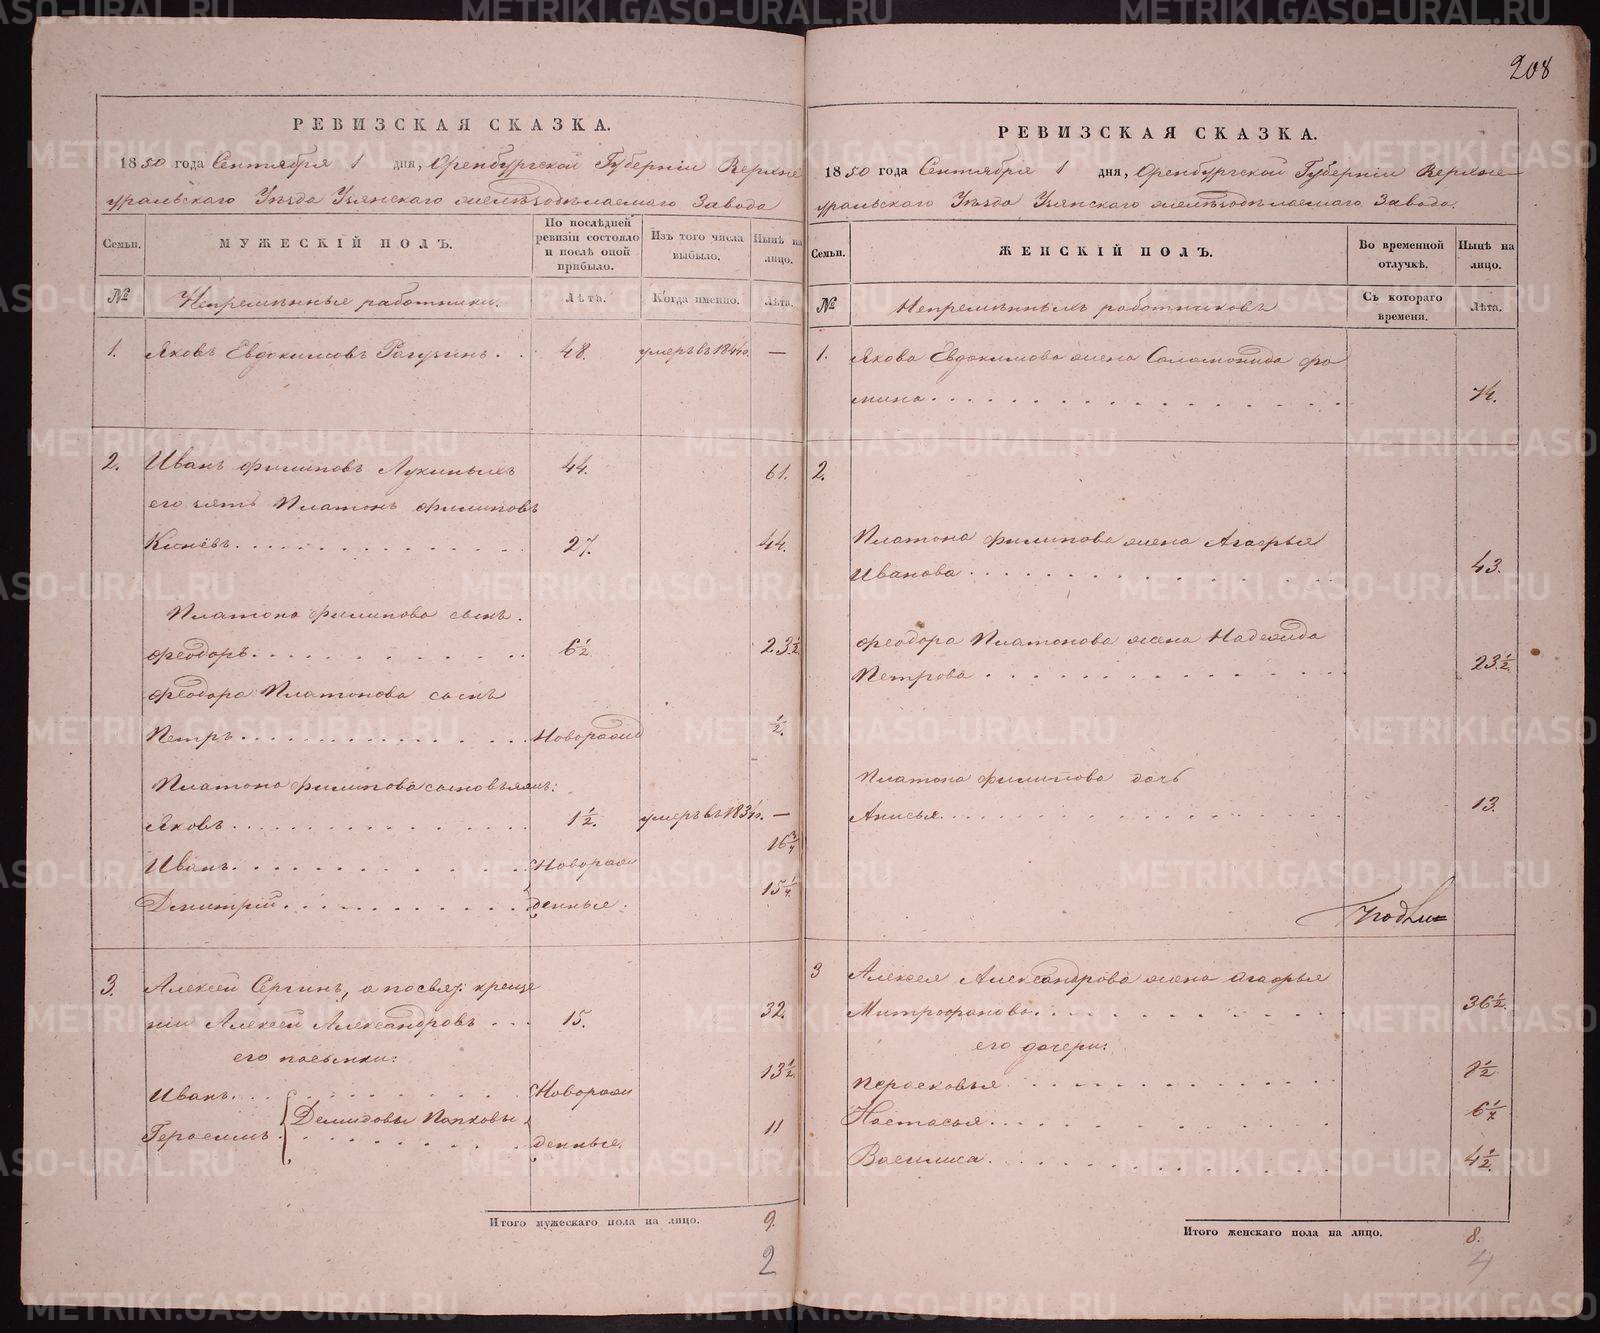 208
РЕВИЗСКАЯ СКАЗКА.
1850 года Сентября 1 дня, Оренбургской Губернiи Верхне
уральскаго Уѣзда Узянскаго желѣзодѣлаемаго Завода
Семьи.
МУЖЕСКIЙ ПОЛЪ.
По послѣдней ревизiи состояло и послѣ оной прибыло.
Изъ того числа выбыло.
Нынѣ на лицо.
№
Непремѣнные работники.
Лѣта.
Когда именно.
Лѣта.
1. Яковъ Евдокимовъ Рагузинъ. . 48. умеръ въ 184 —
2. Иванъ Филиповъ Лукиныхъ 44. 61.
его зять Платонъ Филиповъ
27. 44.
Платона Филипова сынъ.
Феодоръ. 6½ 23½
Феодора Платонова сынъ
Петръ. Новорожд ½.
Платона Филипова сыновья:
Яковъ. 1½. умеръ въ 183 —
Иванъ. Новорож 16¾
Димитрiй. денные. 15¼
3. Алексей Сергинъ, а по свят: креще
нiи Алексей Александровъ . . . 15. 32.
его пасынки:
Иванъ. Новорож 13½
Герасимъ Демидовы Папковы денные. 11
Итого мужескаго пола на лицо. 9.
2
РЕВИЗСКАЯ СКАЗКА.
1850 года Сентября 1 дня, Оренбургской Губернiи Верхне
уральскаго Уѣзда Узянскаго желѣзодѣлаемаго Завода.
Семьи.
ЖЕНСКIЙ ПОЛЪ.
Во временной отлучкѣ.
Нынѣ на лицо.
№
Непремѣнныхъ работниковъ
Съ котораго времени.
Лѣта.
1. Якова Евдокимова жена Соломонида Фо
мина. 74.
2.
Платона Филипова жена Агафья
Иванова. 43.
Феодора Платонова жена Надежида
Петрова. 23½.
Платона Филипова дочь
Анисья. 13.
3 Алексея Александрова жена Агафья
Митрофанова. 36½.
его дочери:
Парасковья 8½
Настасья. 6¼
Василиса. 4½.
Итого женскаго пола на лицо. 8.
4
METRIKI.GASO-URAL.RU